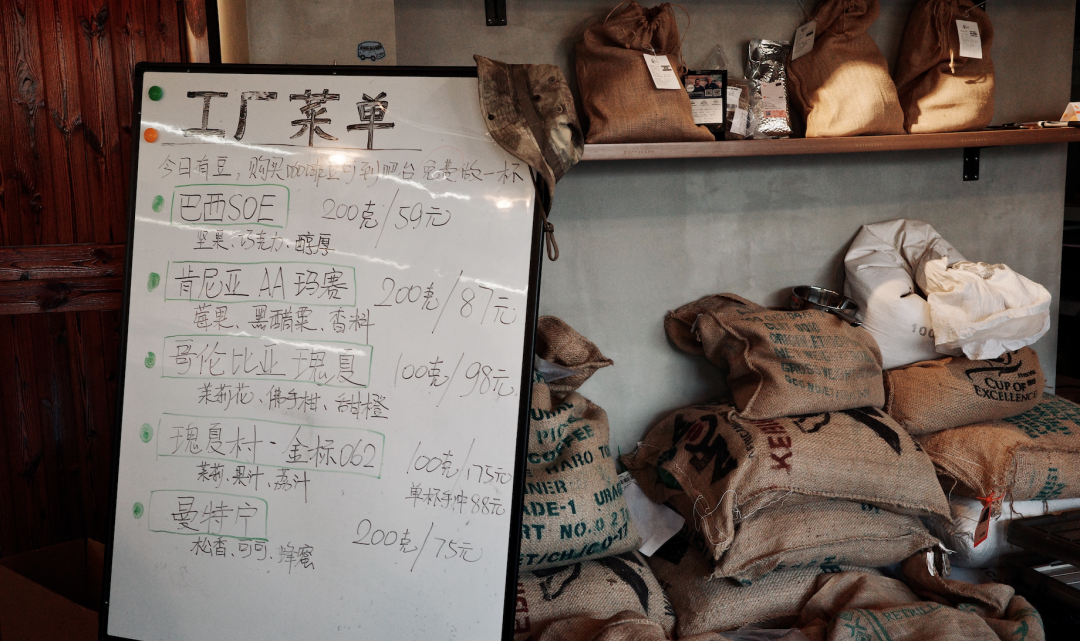 工厂菜单
今日有豆，购买咖啡豆可到吧台免费做一杯
巴西SOE 200克/59元
坚果、巧克力、醇厚
肯尼亚 AA 玛赛 200克/87元
莓果、黑醋栗、香料
哥伦比亚 瑰夏 100克/98元
茉莉花、佛手柑、甜橙
瑰夏村·金标062 100克/175元
茉莉、果汁、荔汁
单杯手冲88元
曼特宁 200克/75元
松香、可可、蜂蜜
100
CUP OF
EXCELLENCE
ADE-1